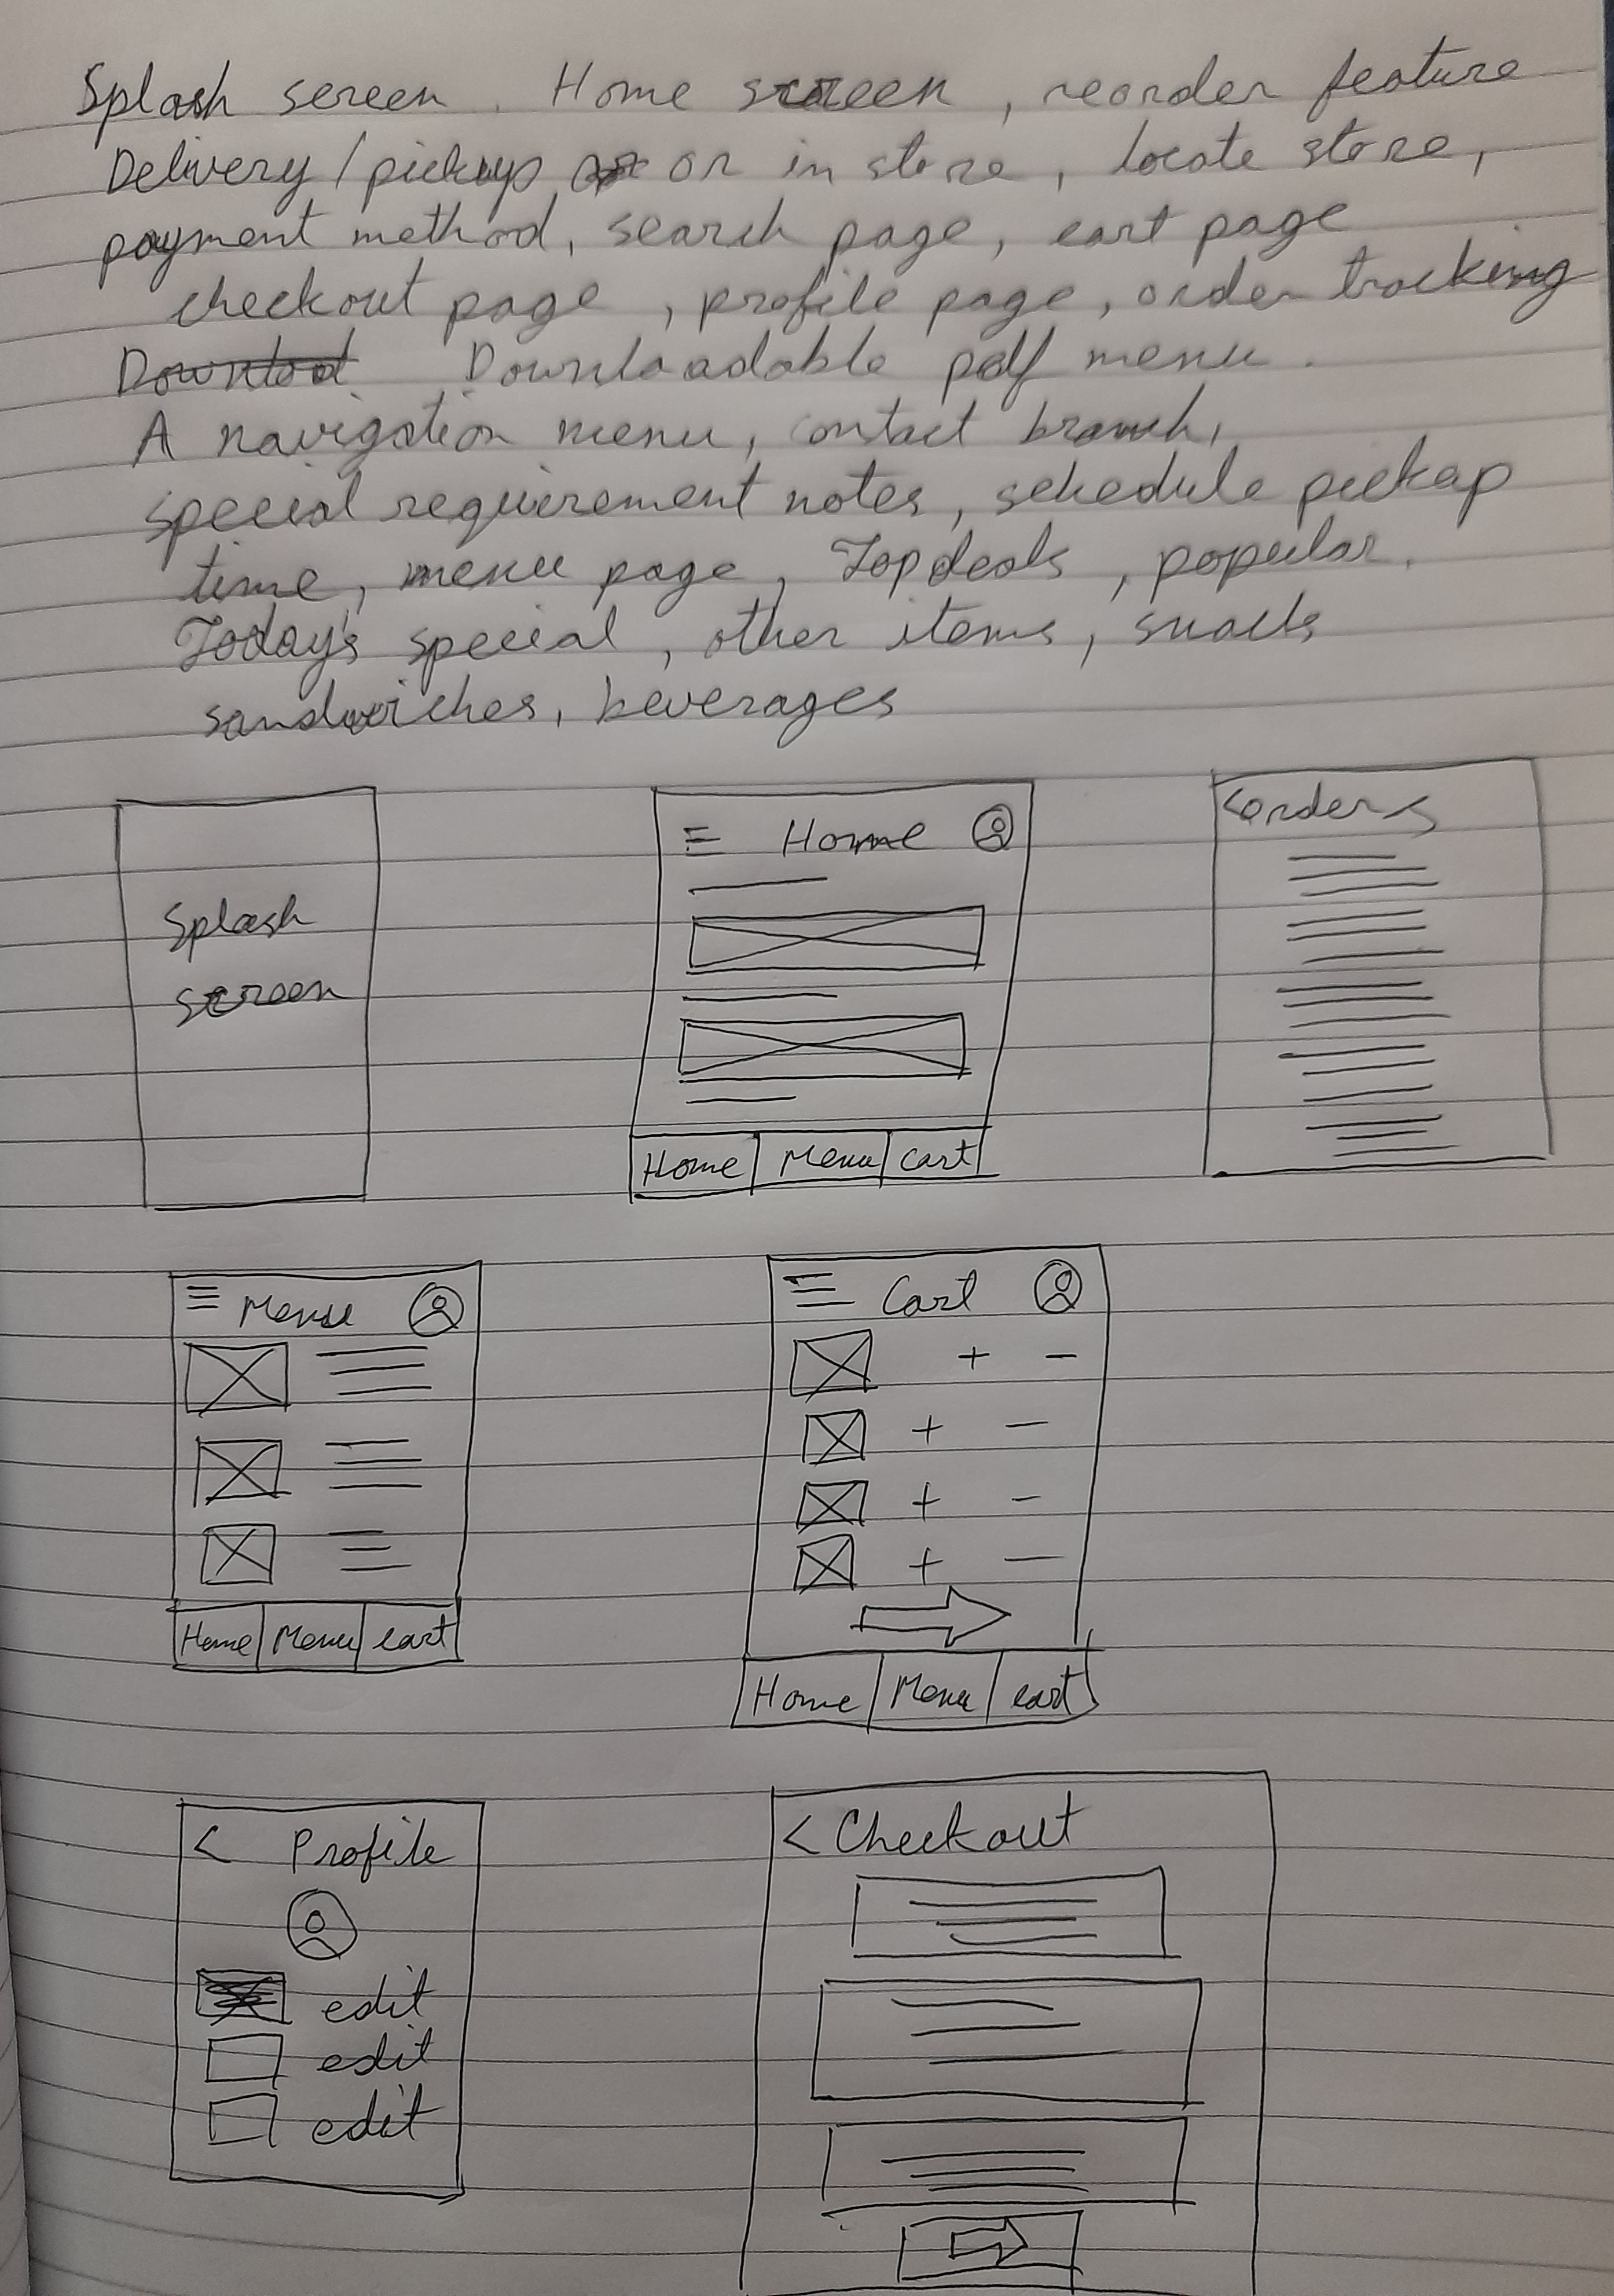 Splash screen. Home screen, reorder feature
Delivery/pickup or in store, locate store,
payment method, search page, cart page
checkout page, profile page, order tracking
Downloadable pdf menu.
A navigation menu, contact branch,
special requirement notes, schedule pickup
time, menu page, Top deals, popular.
Today's special, other items, snacks
sandwiches, beverages
Splash
screen
Home
Home Menu cart
< orders
Menu
Home Menu cart
Cart
+ -
+ -
+ -
+ -
Home Menu cart
< Profile
edit
edit
edit
< Checkout